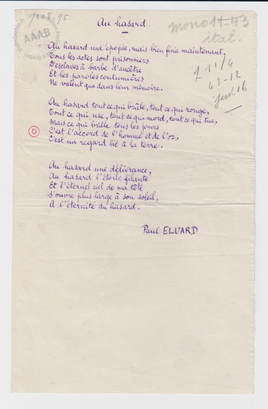 Au hasard.
AAAB
mono 11-43
ital.
Au hasard une épopée, mais bien finie maintenant,
Tous les actes sont prisonniers
D'esclaves à barbe d'ancêtre
Et les paroles coutumières
Ne valent que dans leur mémoire.
Au hasard tout ce qui brûle, tout ce qui ronge,
Tout ce qui use, tout ce qui mord, tout ce qui tue,
Mais ce qui brille tous les jours
C'est l'accord de l'homme et de l'or,
C'est un regard lié à la terre.
Au hasard une délivrance,
Au hasard l'étoile filante
Et l'éternel ciel de ma tête
S'ouvre plus large à son soleil,
A l'éternité du hasard.
Paul ELUARD